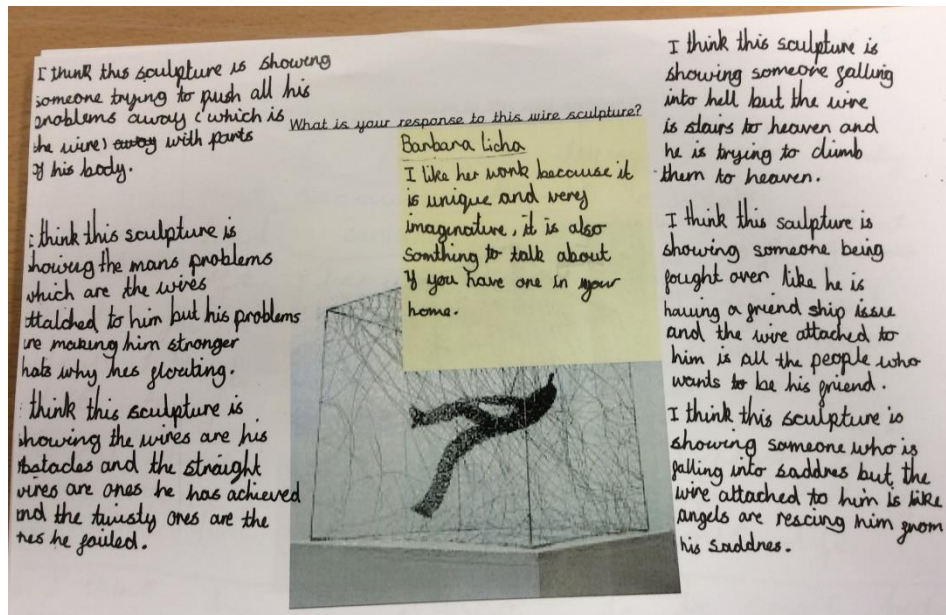 I think this sculpture is showing
someone trying to push all his
problems away (which is
the wire) away with parts
of his body.
I think this sculpture is
showing the mans problems
which are the wires
attatched to him but his problems
are making him stronger
thats why hes floating.
I think this sculpture is
showing the wires are his
obstacles and the straight
wires are ones he has achieved
and the twisty ones are the
ones he failed.
What is your response to this wire sculpture?
Barbara Licha
I like her work because it
is unique and very
imaginative, it is also
somthing to talk about
if you have one in your
home.
I think this sculpture is
showing someone falling
into hell but the wire
is stairs to heaven and
he is trying to climb
them to heaven.
I think this sculpture is
showing someone being
fought over like he is
having a friend ship issue
and the wire attached to
him is all the people who
wants to be his friend.
I think this sculpture is
showing someone who is
falling into saddnes but the
wire attached to him is like
angels are rescing him from
his saddnes.